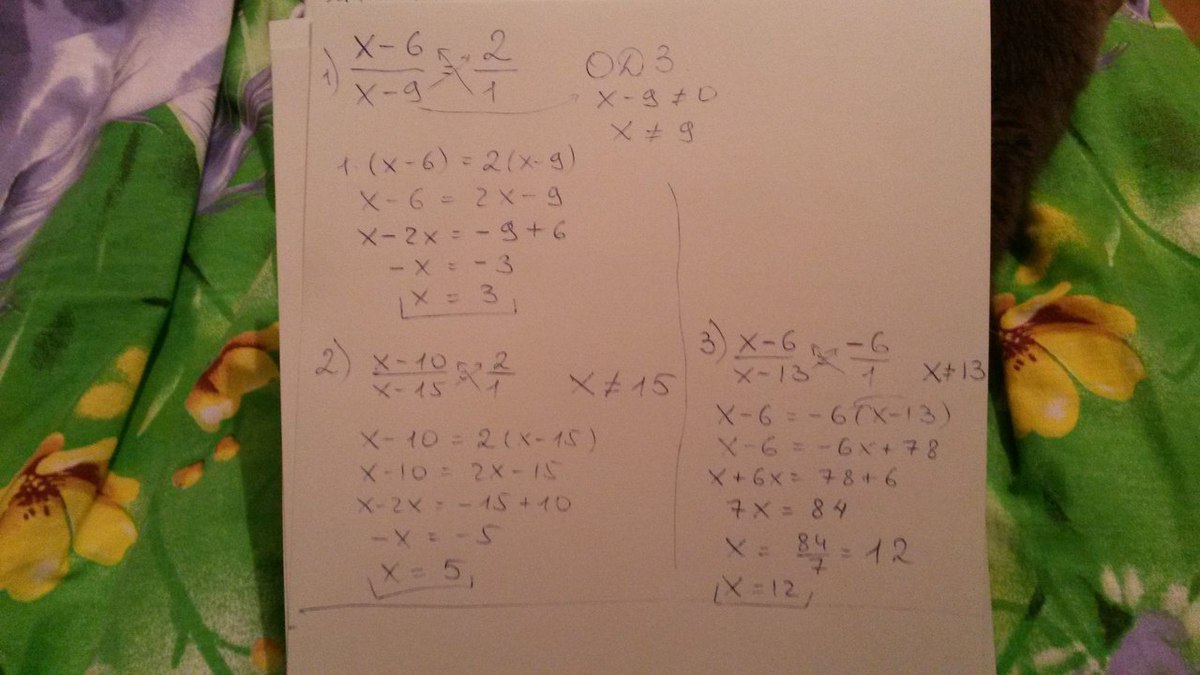 1) (x-6)/(x-9) = 2/1
ОДЗ
x-9≠0
x≠9
1·(x-6)=2(x-9)
x-6=2x-9
x-2x=-9+6
-x=-3
x=3
2) (x-10)/(x-15) = 2/1
x≠15
x-10=2(x-15)
x-10=2x-15
x-2x=-15+10
-x=-5
x=5
3) (x-6)/(x-13) = -6/1
x≠13
x-6=-6(x-13)
x-6=-6x+78
x+6x=78+6
7x=84
x=84/7=12
x=12